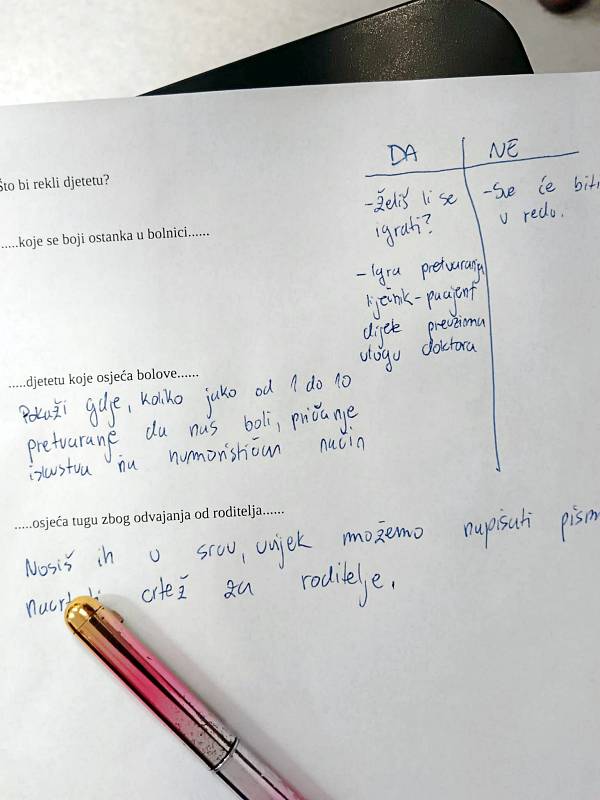 Što bi rekli djetetu?
DA NE
- Želiš li se
igrati?
- Sve će biti
u redu.
.....koje se boji ostanka u bolnici......
- Igra pretvaranja
liječnik - pacijent
dijete preuzima
ulogu doktora
.....djetetu koje osjeća bolove......
Pokaži gdje, koliko jako od 1 do 10
pretvaranje da nas boli, pričanje
iskustva na humorističan način
.....osjeća tugu zbog odvajanja od roditelja......
Nosiš ih u srcu, uvijek možemo napisati
crtež za roditelje.